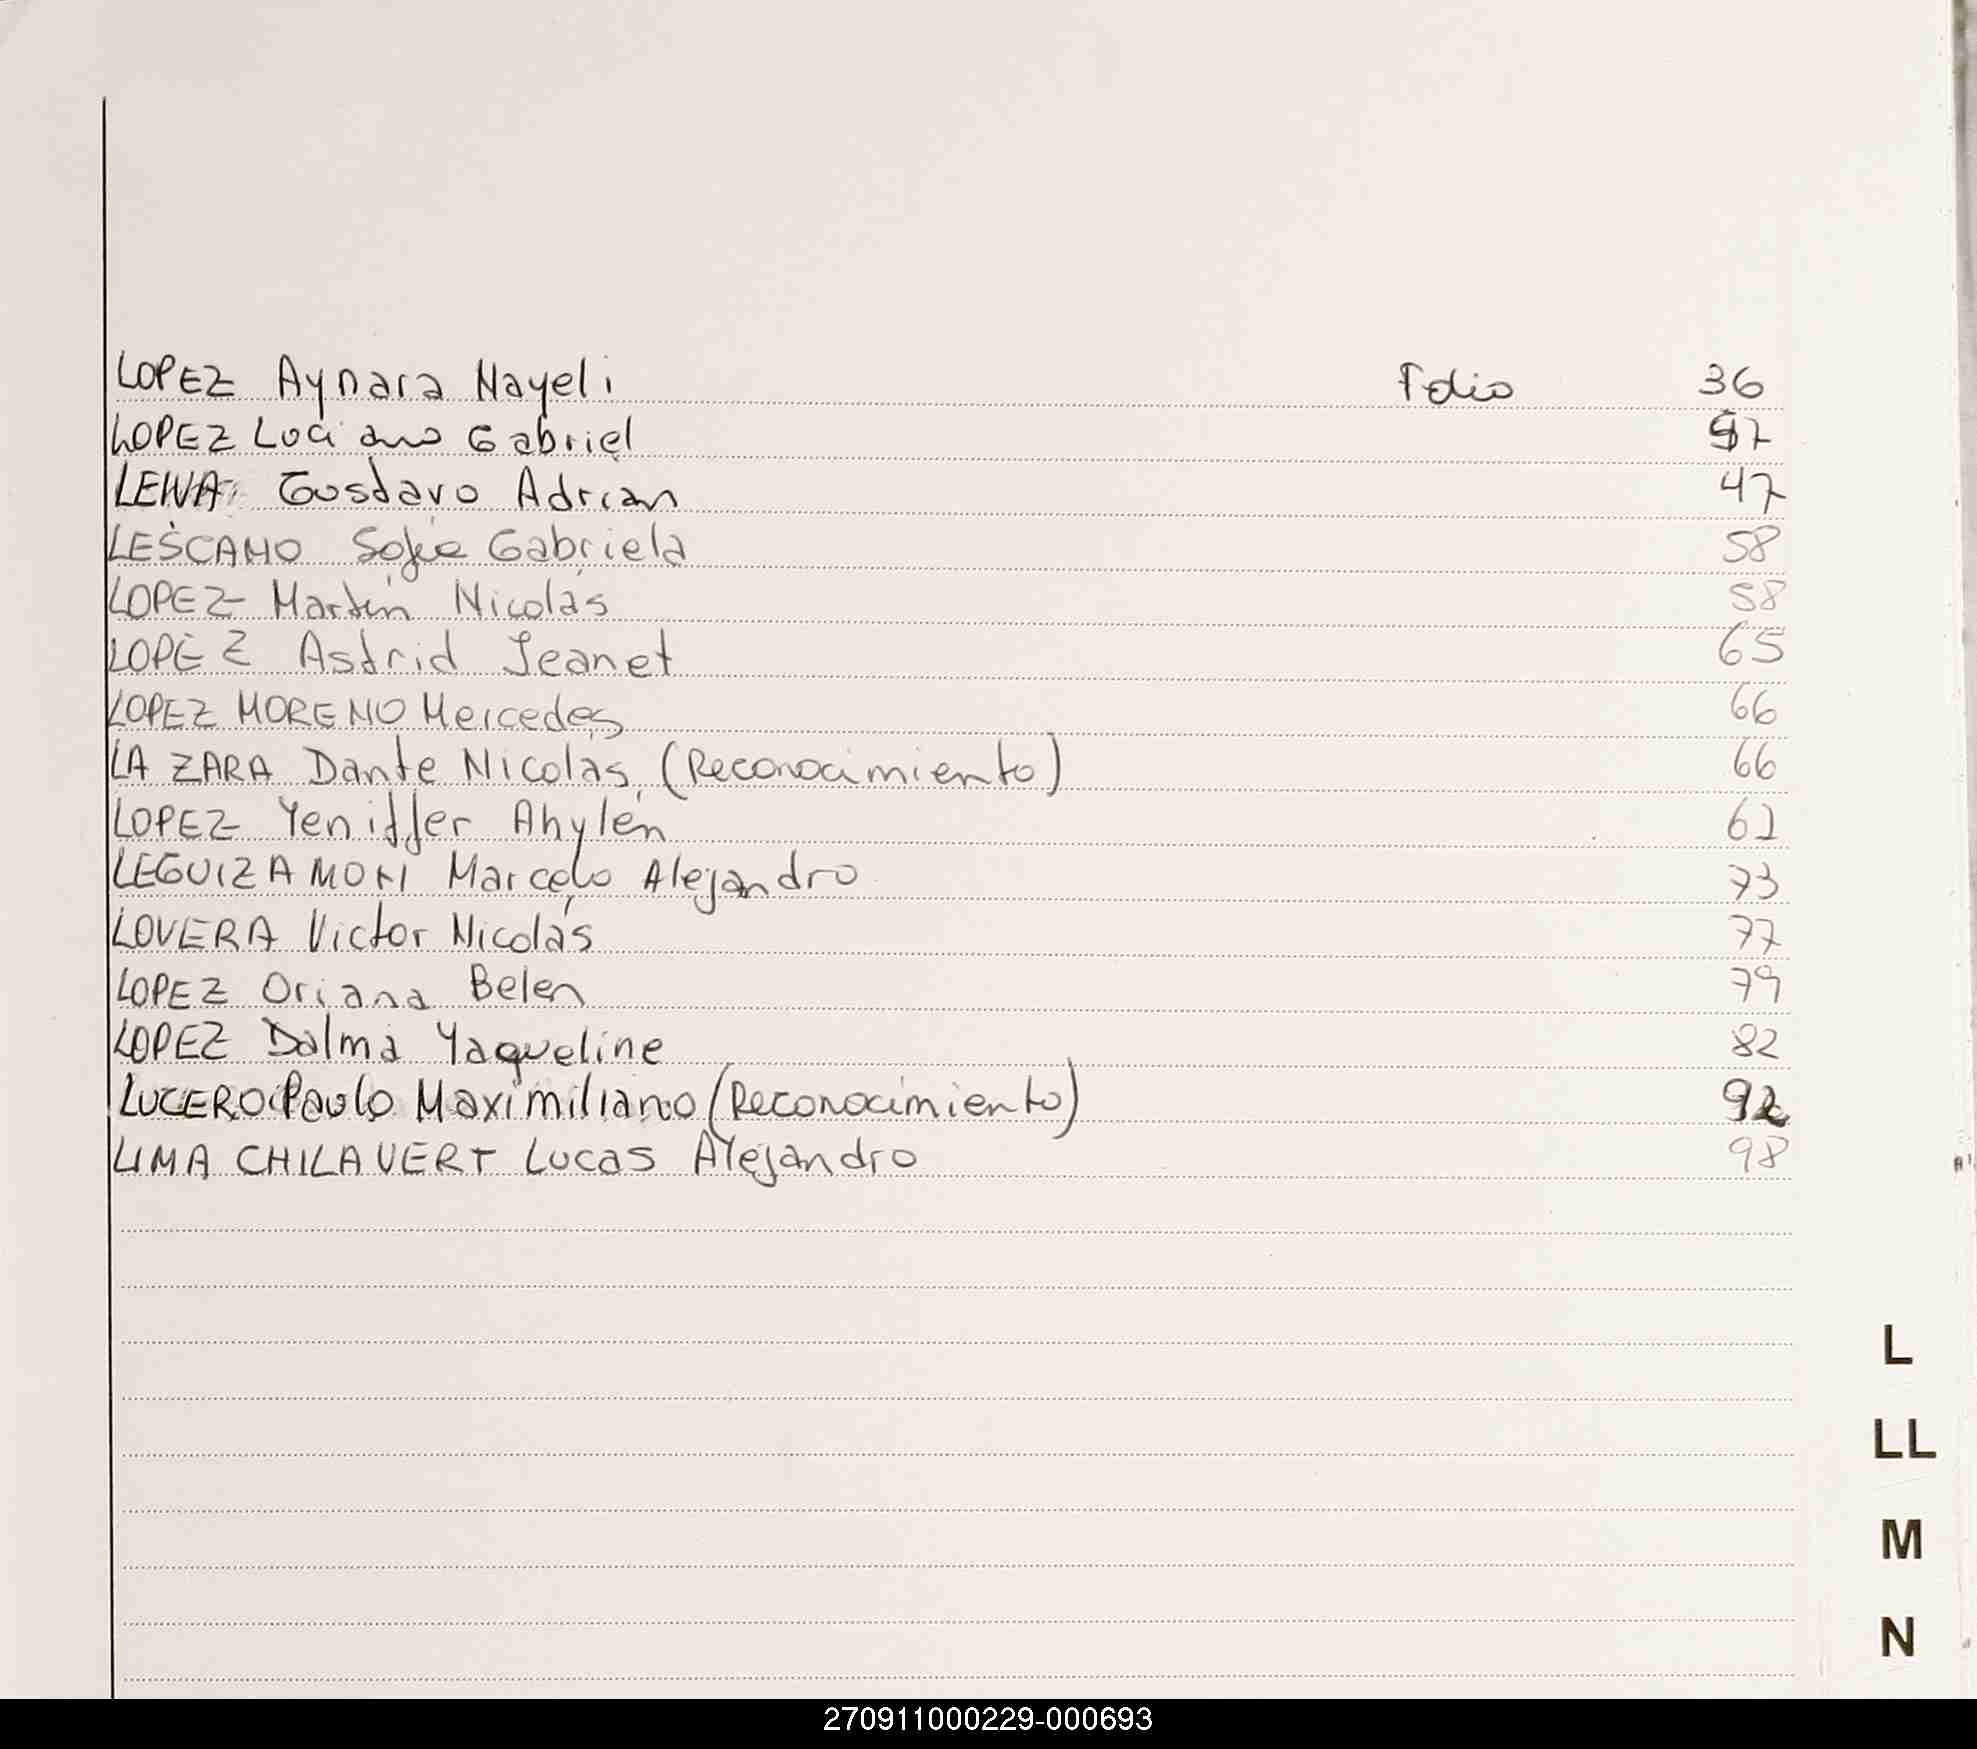 LOPEZ Aynara Nayeli Folio 36
LOPEZ Luciano Gabriel 57
LEIVA Gustavo Adrian 47
LESCANO Sofia Gabriela 58
LOPEZ Martin Nicolás 58
LOPEZ Astrid Jeanet 65
LOPEZ MORENO Mercedes 66
LA ZARA Dante Nicolás (Reconocimiento) 66
LOPEZ Yeniffer Ahylén 61
LEGUIZAMON Marcelo Alejandro 73
LOVERA Victor Nicolás 77
LOPEZ Oriana Belen 79
LOPEZ Dalma Yaqueline 82
LUCERO Paulo Maximiliano (Reconocimiento) 92
LIMA CHILAVERT Lucas Alejandro 98
L
LL
M
N
270911000229-000693